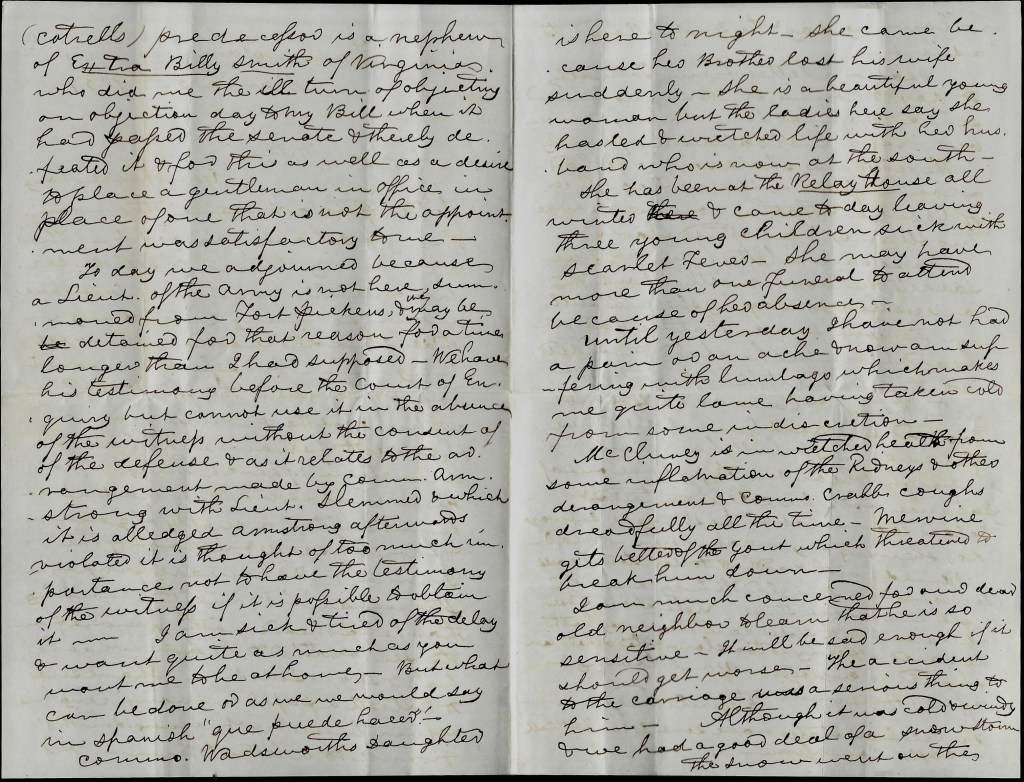 (Cotrells) predecessor is a nephew
of Extra Billy Smith of Virginia.
who did me the ill turn of objecting
on objection day to my Bill when it
had passed the Senate & therely de.
feated it & for this as well as a desire
to place a gentleman in office in
place of one that is not the appoint
ment was satisfactory to me —
To day we adjourned because
a Lieut. of the Army is not here, sum.
moned from Fort Pickens, & we may be
detained for that reason for a time
longer than I had supposed — We have
his testimony before the Court of En.
quiry but cannot use it in the absence
of the witness without the consent of
of the defense & as it relates to the ar.
rangement made by Comm. Arm.
strong with Lieut. Slemmed & which
it is alledged Armstrong afterwards
violated it is thought of too much im.
portance not to have the testimony
of the witness if it is possible to obtain
it — I am sick & tired of the delay
& want quite as much as you
want me to be at home — But what
can be done or as we would say
in Spanish "que puede hacer" —
Commo. Wadsworths Daughter
is here to night — She came be.
cause her Brother lost his wife
suddenly — She is a beautiful young
woman but the ladies here say she
has led a wretched life with her hus.
band who is now at the south —
She has been at the Relay House all
winter & came to day leaving
three young children sick with
Scarlet Fever — She may have
more than one funeral to attend
because of her absence —
Until yesterday I have not had
a pain or an ache & now am suf
fering with lumbago which makes
me quite lame having taken cold
from some indiscretion —
McCluney is in wretched health from
some inflamation of the Kidneys & other
derangement & Commo. Crabb coughs
dreadfully all the time — Mervine
gets better of the Gout which threatened to
break him down —
I am much concerned for our dear
old neighbor to learn that he is so
sensitive — It will be sad enough if it
should get worse — The accident
to the carriage was a serious thing to
him — Although it was cold & windy
& we had a good deal of a snow storm
the snow went on the